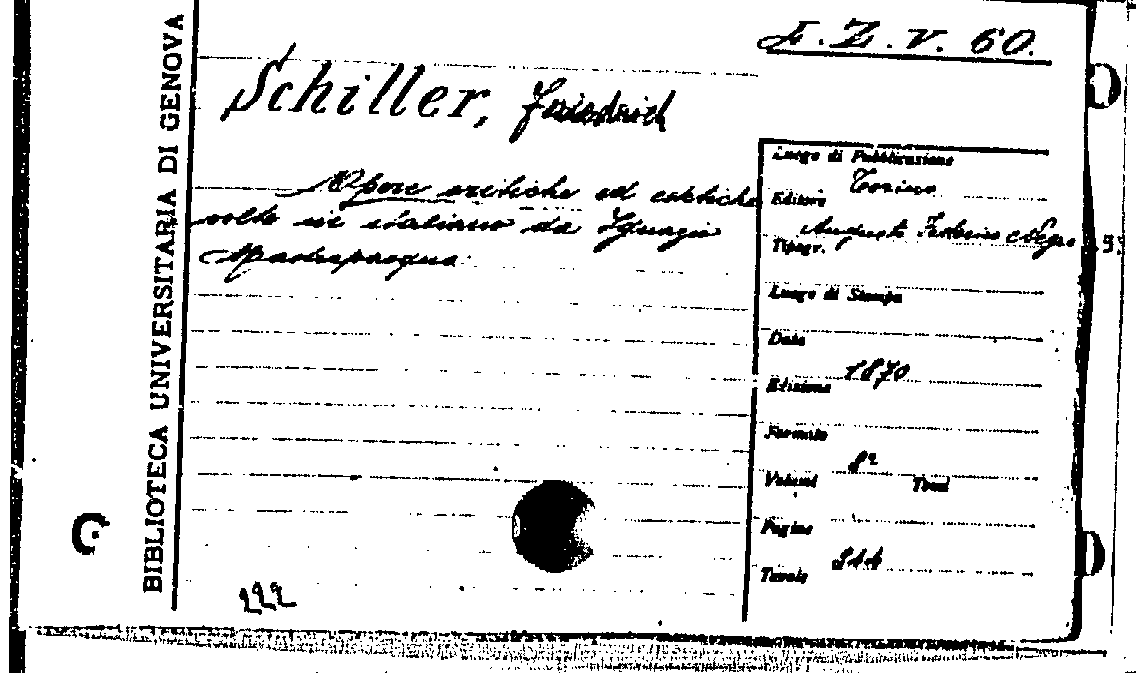 BIBLIOTECA UNIVERSITARIA DI GENOVA
F. Z. V. 60.
Schiller, Friedrich
Opere critiche ed estetiche
volte in italiano da Ignazio
Mastropasqua
Luogo di Pubblicazione
Torino
Editore
Augusto Federico Negro
Tipogr.
Luogo di Stampa
Data
1870
Edizione
Formato
8º
Volumi Tomi
Pagine
Tavole
222